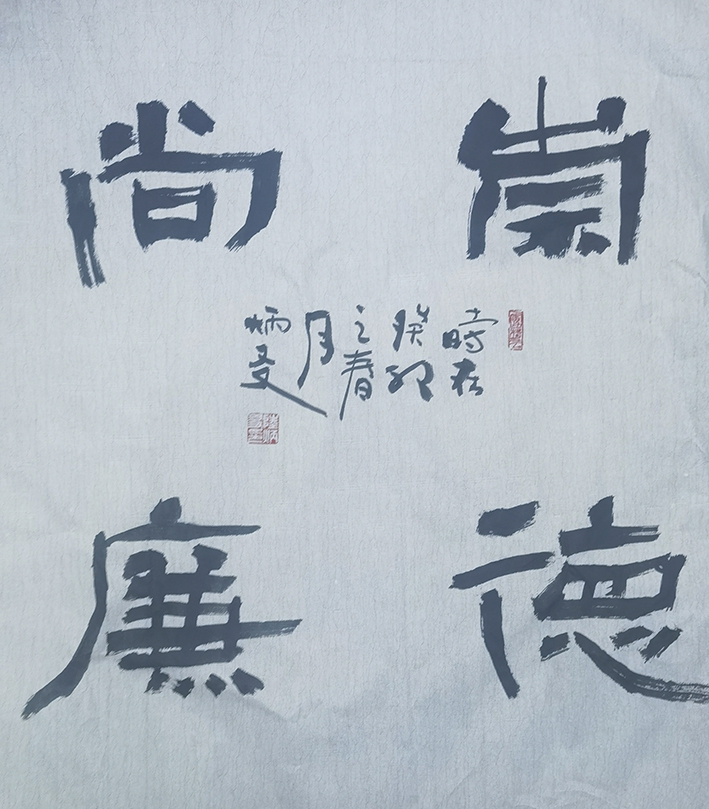 崇德
尚廉
時在
癸卯
之春
月
炳